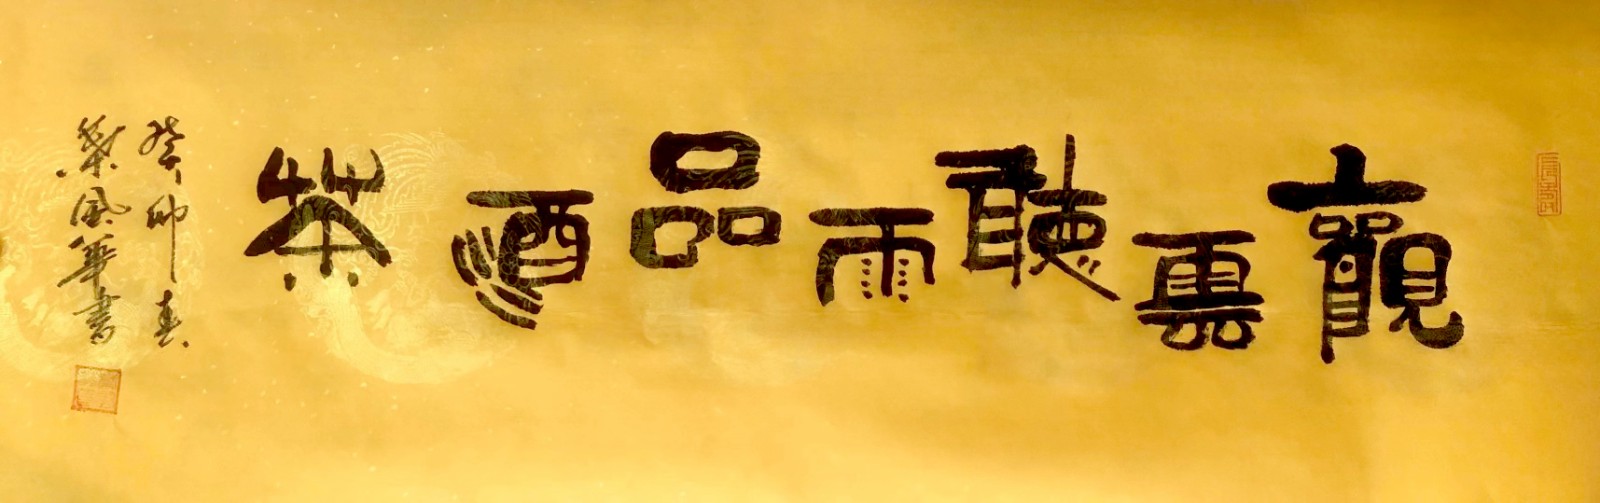 觀雲聽雨品酒茶
癸卯春
葉風華書